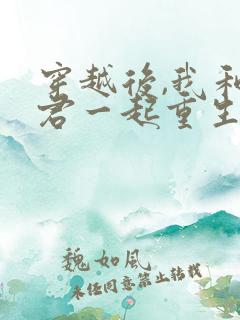 穿越後,我和
君一起重生
魏如風
未經同意禁止轉載